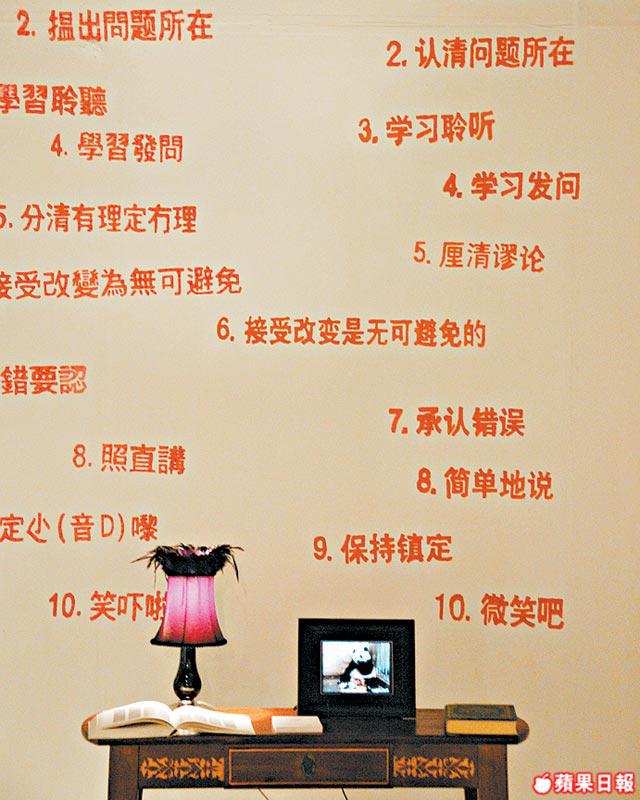 2. 搵出問題所在
學習聆聽
4. 學習發問
5. 分清有理定冇理
接受改變為無可避免
錯要認
8. 照直講
定尐(音D)嚟
10. 笑吓啦
2. 认清问题所在
3. 学习聆听
4. 学习发问
5. 厘清谬论
6. 接受改变是无可避免的
7. 承认错误
8. 简单地说
9. 保持镇定
10. 微笑吧
蘋果日報